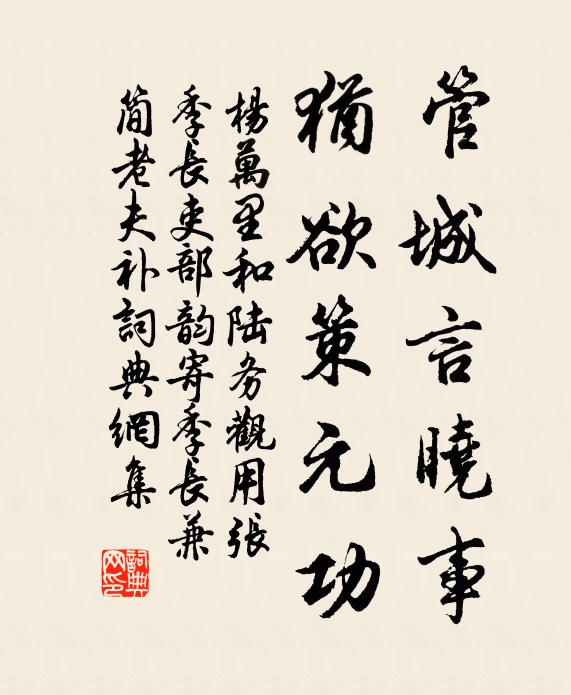 管城言曉事
猶欲策元功
楊萬里和陆务觀用張
季長吏部韵寄季長兼
简老夫补詞典網集
詞典
网印